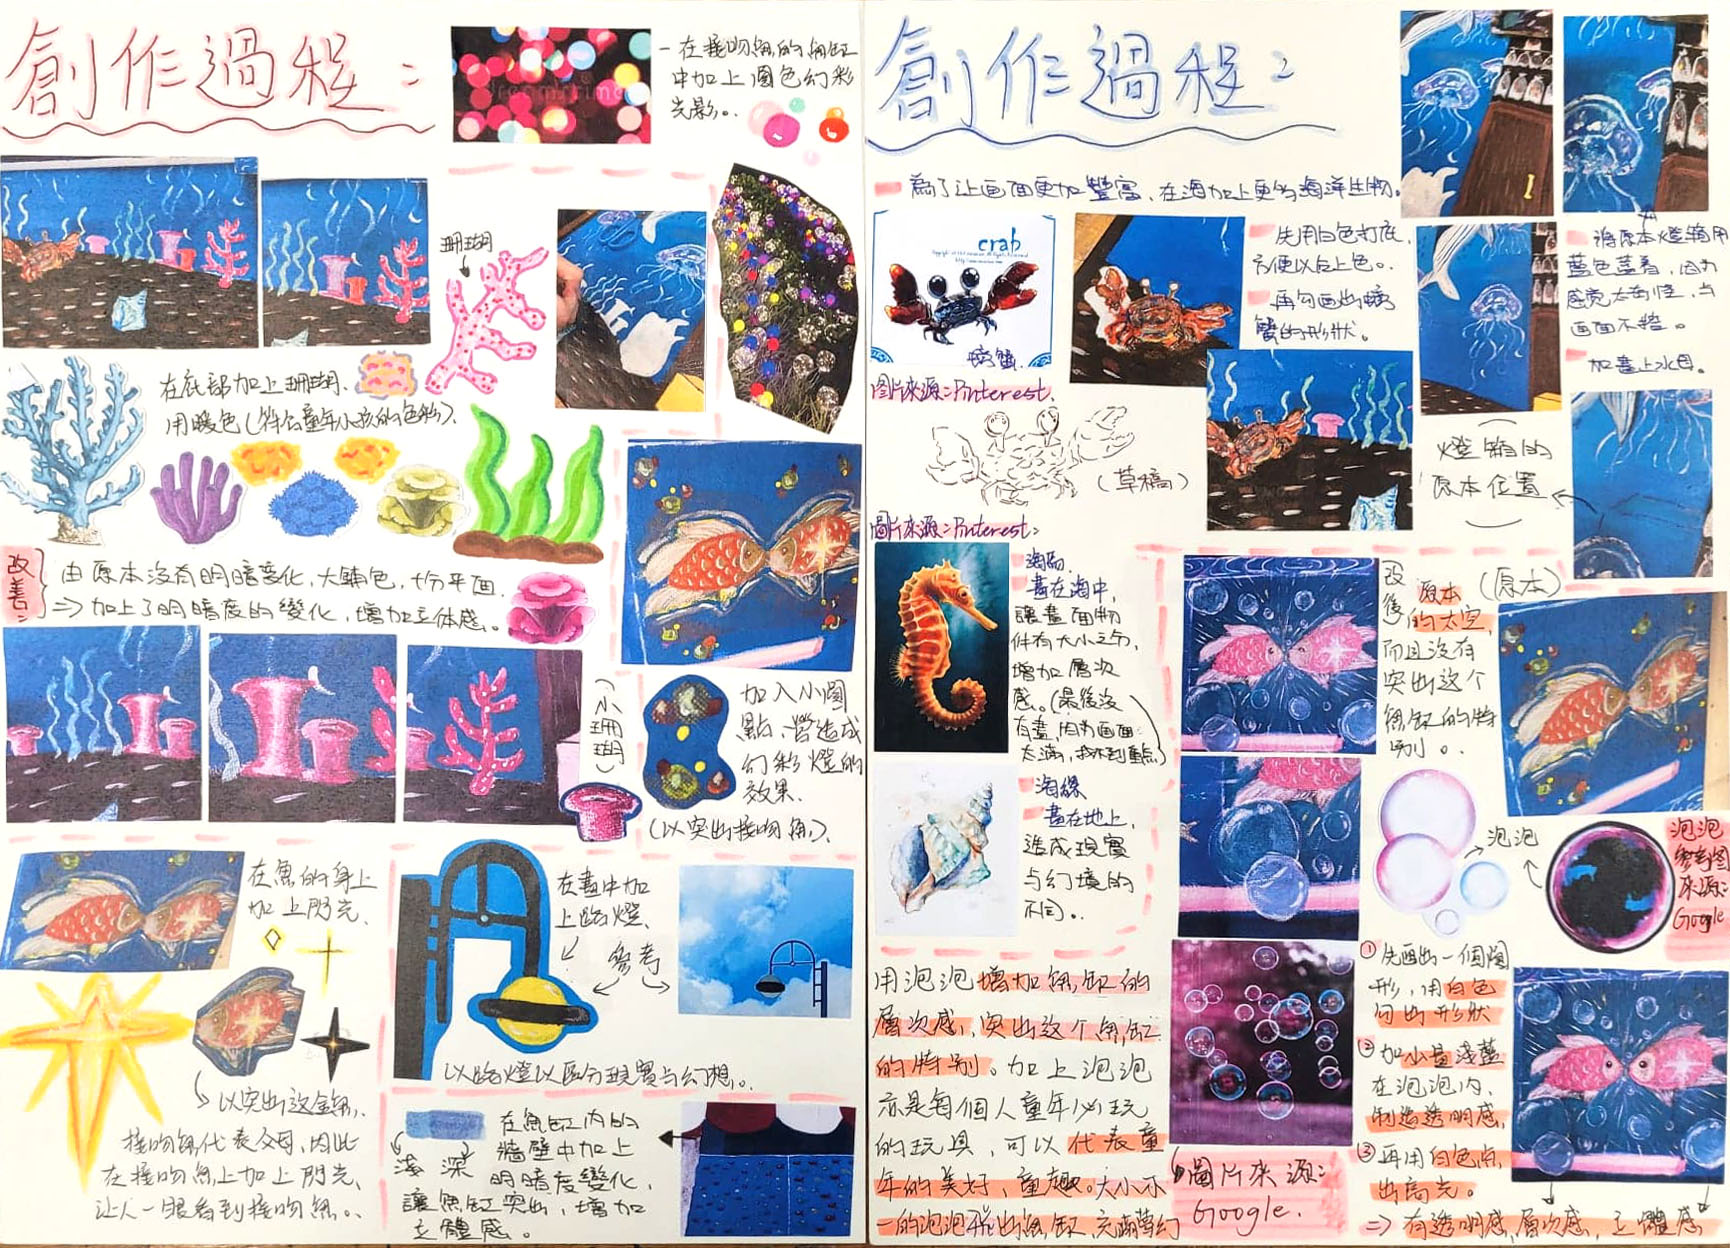 創作過程：
－在接吻魚的魚缸
中加上圓色幻彩
光影。
dreamstime
珊瑚
在底部加上珊瑚、
用暖色(符合童年小孩的色彩)、
改善：
由原本沒有明暗變化，大鋪色，十分平面、
=> 加上了明暗度的變化，增加立體感。
(小珊瑚)
加入小圓
點、營造成
幻彩燈的
效果、
(以突出接吻魚)、
在魚的身上
加上閃光、
以突出这金魚、
接吻魚代表父母，因此
在接吻魚上加上閃光、
让人一眼看到接吻魚。
在畫中加
上路燈、
參考
以路燈以區分現實与幻想。
淺 深
在魚缸內的
牆壁中加上
明暗度變化，
讓魚缸突出，增加
立體感。
創作過程：
為了让画面更加豐富，在海加上更多海洋生物。
crab
螃蟹
先用白色打底，
方便以后上色。
再勾画出螃
蟹的形狀。
图片來源：Pinterest、
(草稿)
將原本燈箱用
蓝色蓋着，因为
感觉太奇怪，与
画面不搭。
加畫上水母。
燈箱的
原本位置
圖片來源：Pinterest：
海馬
畫在海中，
讓畫面物
件有大小之分，
增加層次
感。(最後沒
有畫，因为画面
太滿，找不到重點)
海螺
畫在地上，
造成現實
与幻境的
不同。
改後
(原本)
原本
的太空，
而且沒有
突出这个
魚缸的特
別。
泡泡
泡泡
參考图
來源：
Google
用泡泡增加魚缸的
層次感，突出这个魚缸
的特別。加上泡泡
亦是每個人童年必玩
的玩具，可以代表童
年的美好、童趣。大小不
一的泡泡飛出魚缸，充滿夢幻
圖片來源：
Google.
① 先画出一個圓
形，用白色
勾出形狀
② 加小量淺藍
在泡泡內、
制造透明感，
③ 再用白色点
出高光。
=> 有透明感，層次感，立體感